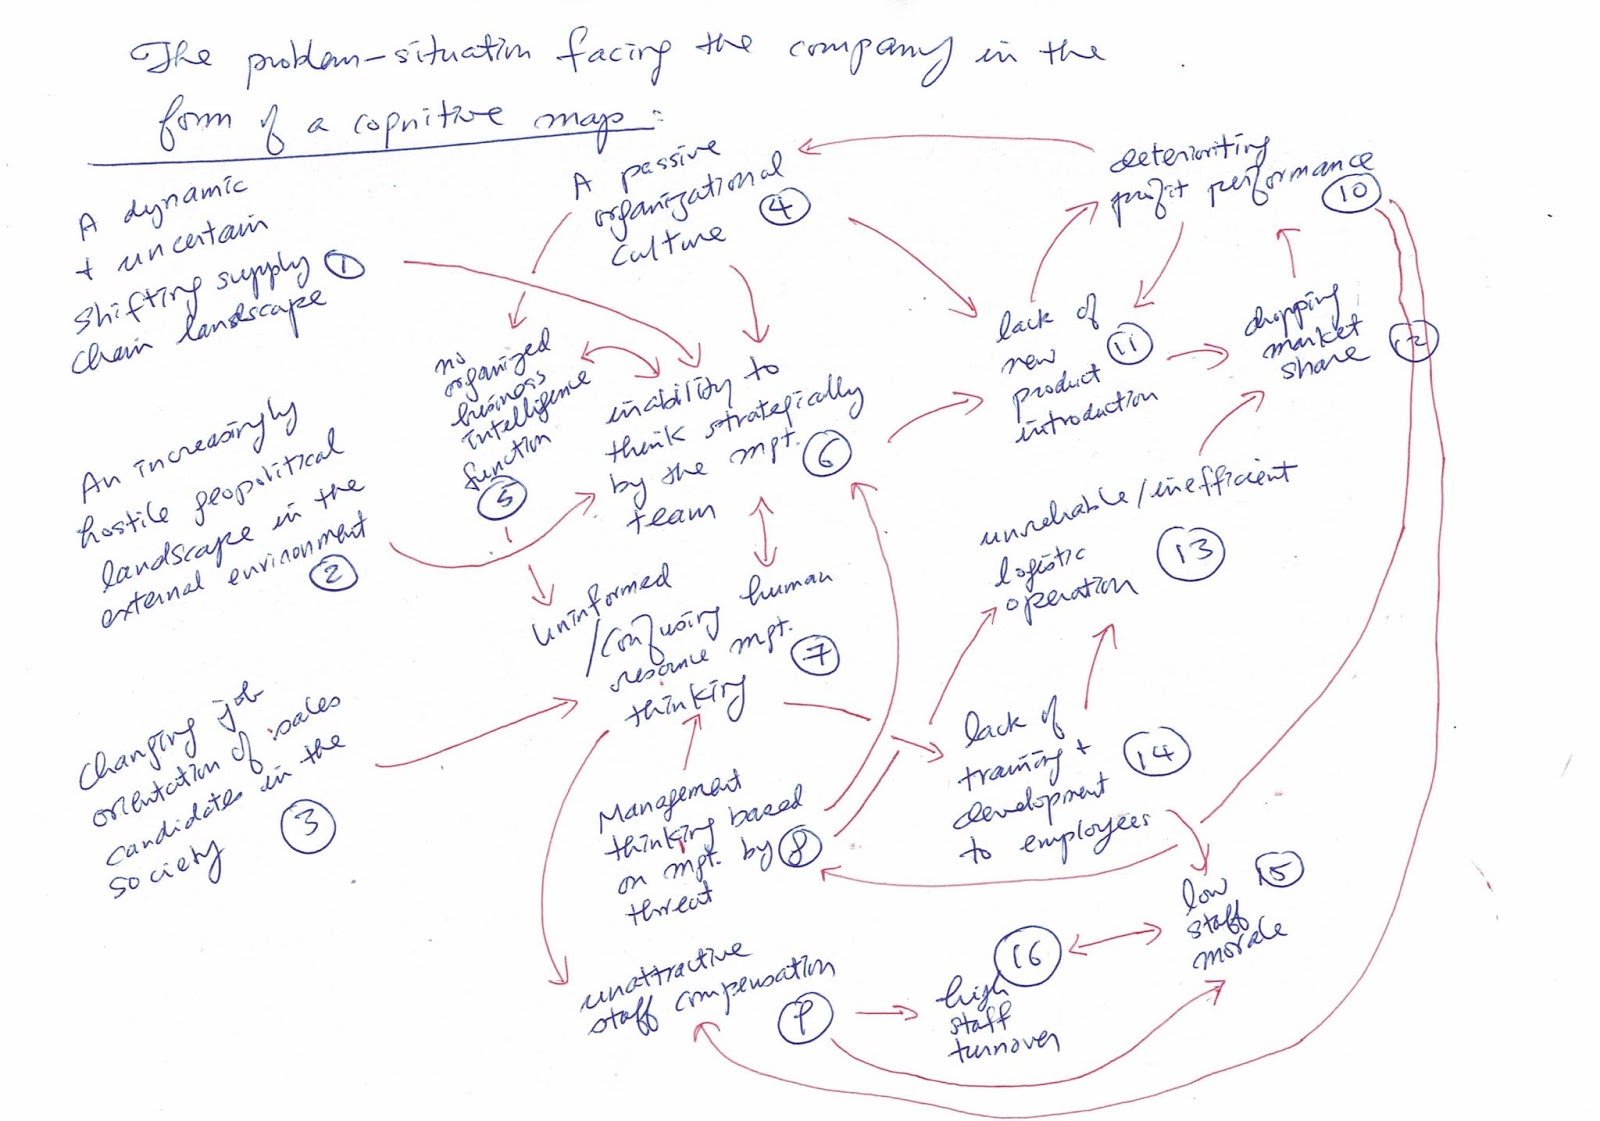 The problem-situation facing the company in the
form of a cognitive map:
A dynamic
+ uncertain
shifting supply 1
chain landscape
An increasingly
hostile geopolitical
landscape in the
external environment
2
Changing job
orientation of sales
candidates in the
society 3
A passive
organizational
culture 4
no
organized
business
intelligence
function
5
inability to
think strategically
by the mgt. 6
team
uninformed
/confusing human
resource mgt. 7
thinking
Management
thinking based
on mgt. by 8
threat
unattractive
staff compensation
9
deterioriting
profit performance
10
lack of
new 11
product
introduction
dropping
market 12
share
unreliable/inefficient
logistic 13
operation
lack of
training + 14
development
to employees
low 15
staff
morale
16
high
staff
turnover